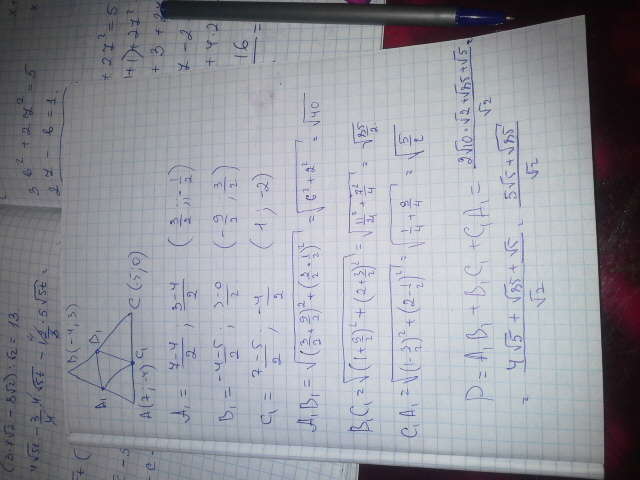 B(-4;3)
A₁ B₁
A(7;-4) C₁ C(-5;0)
A₁ = (7-4)/2 ; (3-4)/2 (3/2 ; -1/2)
B₁ = (-4-5)/2 ; (3-0)/2 (-9/2 ; 3/2)
C₁ = (7-5)/2 , -4/2 (1 ; -2)
A₁B₁ = √((3/2+9/2)²+(3/2+1/2)²) = √(6²+2²) = √40
B₁C₁ = √((1+9/2)²+(2+3/2)²) = √(11²/4+7²/4) = √(85/2)
C₁A₁ = √((1-3/2)²+(2-1/2)²) = √(1/4+9/4) = √(5/2)
P = A₁B₁ + B₁C₁ + C₁A₁ = (2√10·√2+√85+√5)/√2 =
= (4√5+√85+√5)/√2 = (5√5+√85)/√2
3b²+2y²=5
+2y²=5
+3+2
7-2
+4·2
16